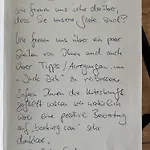 Wir freuen uns sehr darüber,
dass Sie unsere Gäste sind!
Wir freuen uns über ein paar
Zeilen von Ihnen und auch
über Tipps / Anregungen, um
zu verbessern.
Sofern Ihnen die Unterkunft
gefällt, wären wir natürlich
über eine positive Bewertung
auf „booking.com“ sehr
dankbar.